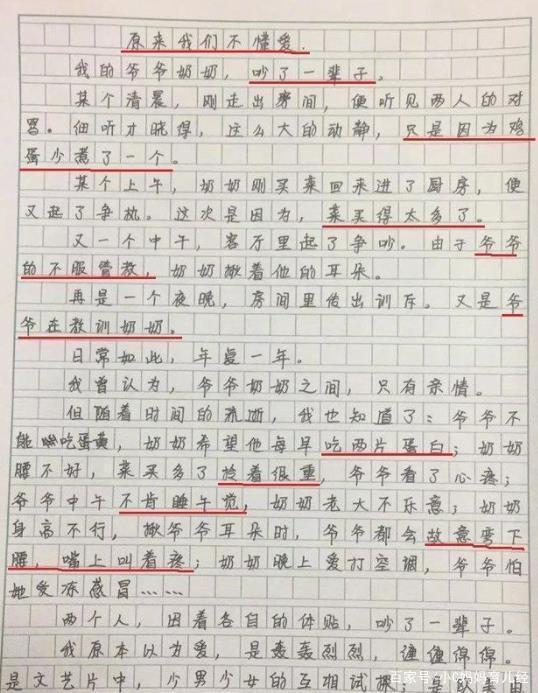 原来我们不懂爱.
我的爷爷奶奶，吵了一辈子。
某个清晨，刚走出房间，便听见两人的对
骂。细听才晓得，这么大的动静，只是因为鸡
蛋少煮了一个。
某个上午，奶奶刚买菜回来进了厨房，便
又起了争执。这次是因为，菜买得太多了。
又一个中午，客厅里起了争吵。由于爷爷
的不服管教，奶奶揪着他的耳朵。
再是一个夜晚，房间里传出训斥。又是爷
爷在教训奶奶。
日常如此，年复一年。
我曾认为，爷爷奶奶之间，只有亲情。
但随着时间的流逝，我也知道了：爷爷不
能吃蛋黄，奶奶希望他每早吃两片蛋白；奶奶
腰不好，菜买多了拎着很重，爷爷看了心疼；
爷爷中午不肯睡午觉，奶奶老大不乐意；奶奶
身高不行，揪爷爷耳朵时，爷爷都会故意弯下
腰，嘴上叫着疼；奶奶晚上爱打空调，爷爷怕
她受冻感冒……
两个人，因着各自的体贴，吵了一辈子。
我原本以为爱，是轰轰烈烈，缠缠绵绵。
是文艺片中，少男少女的互相试探，是
百家号/小C妈妈育儿经